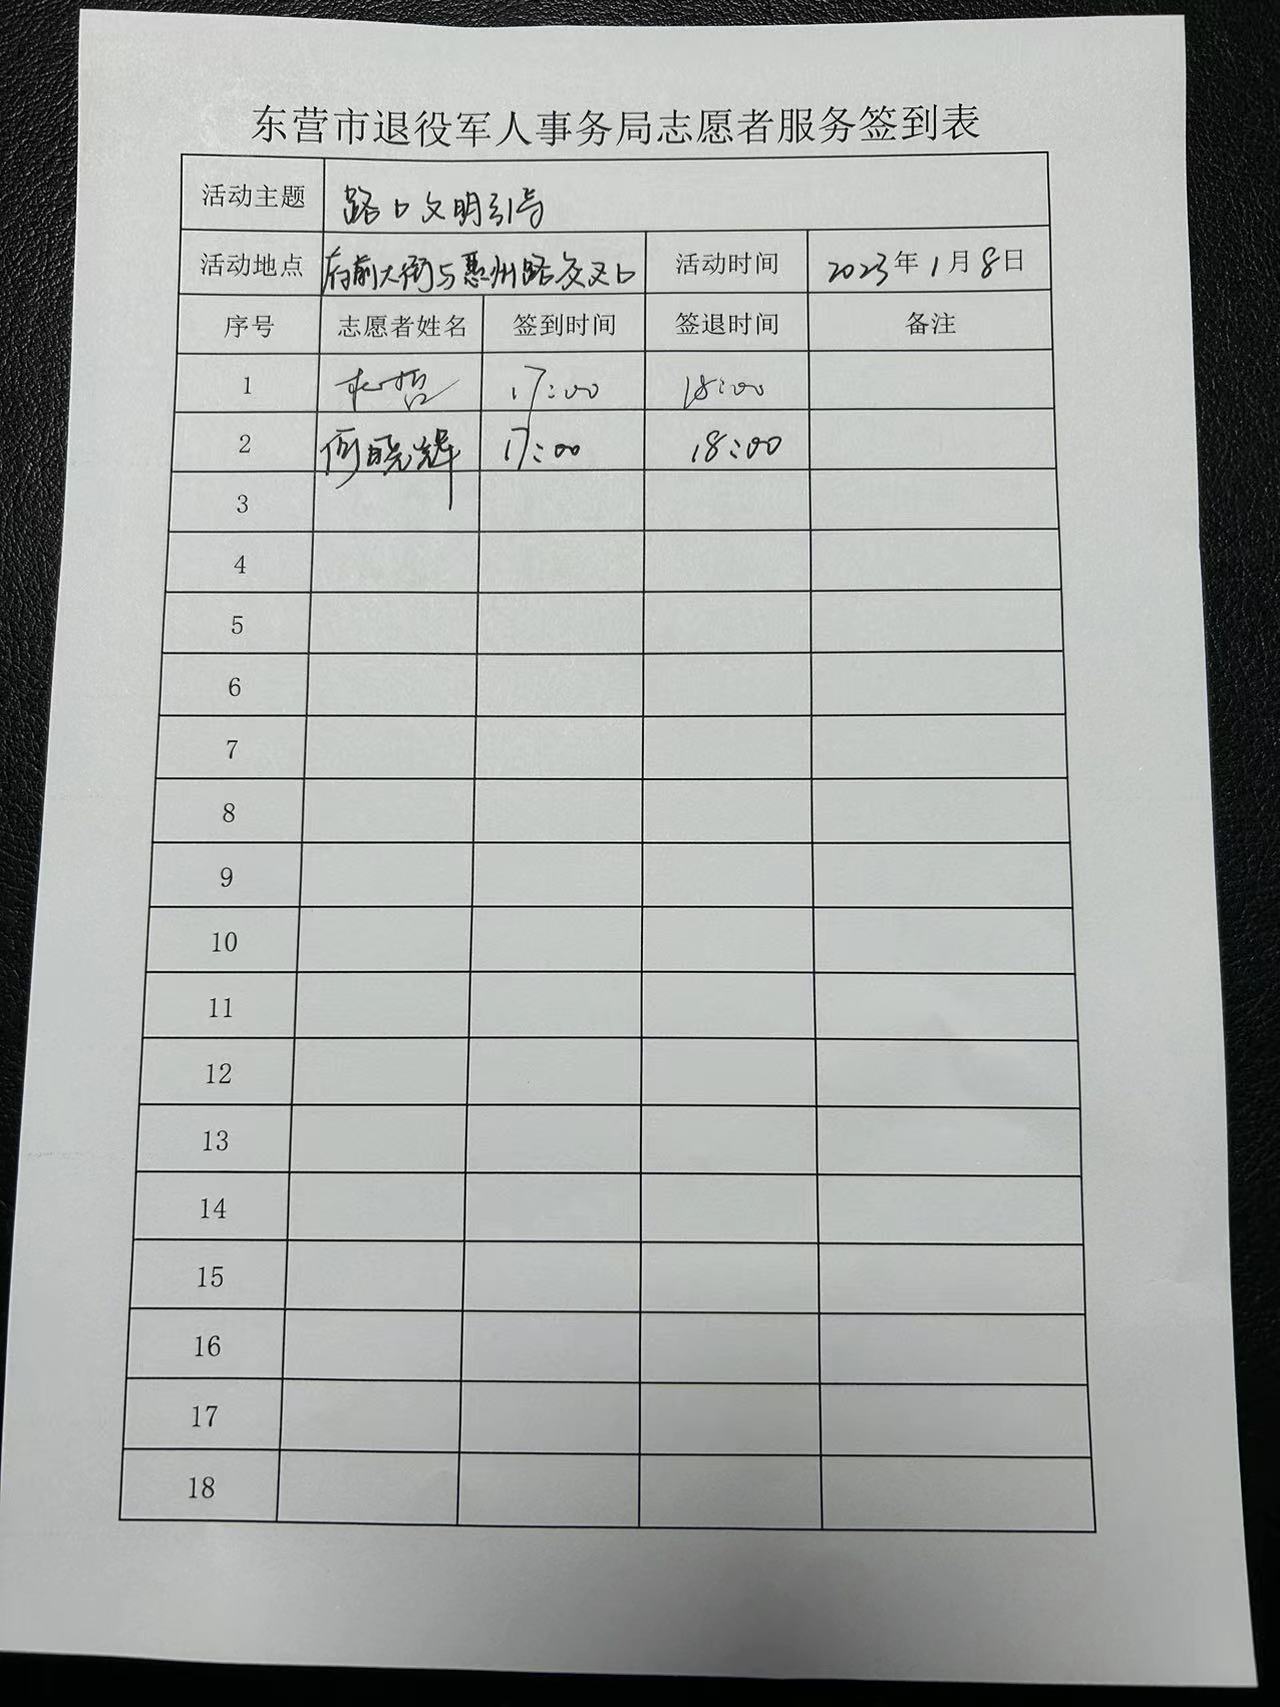 东营市退役军人事务局志愿者服务签到表
活动主题 路口文明引导
活动地点 府前大街与惠州路交叉口 活动时间 2023年1月8日
序号 志愿者姓名 签到时间 签退时间 备注
1 哲 17:00 18:00
2 何晓辉 17:00 18:00
3
4
5
6
7
8
9
10
11
12
13
14
15
16
17
18